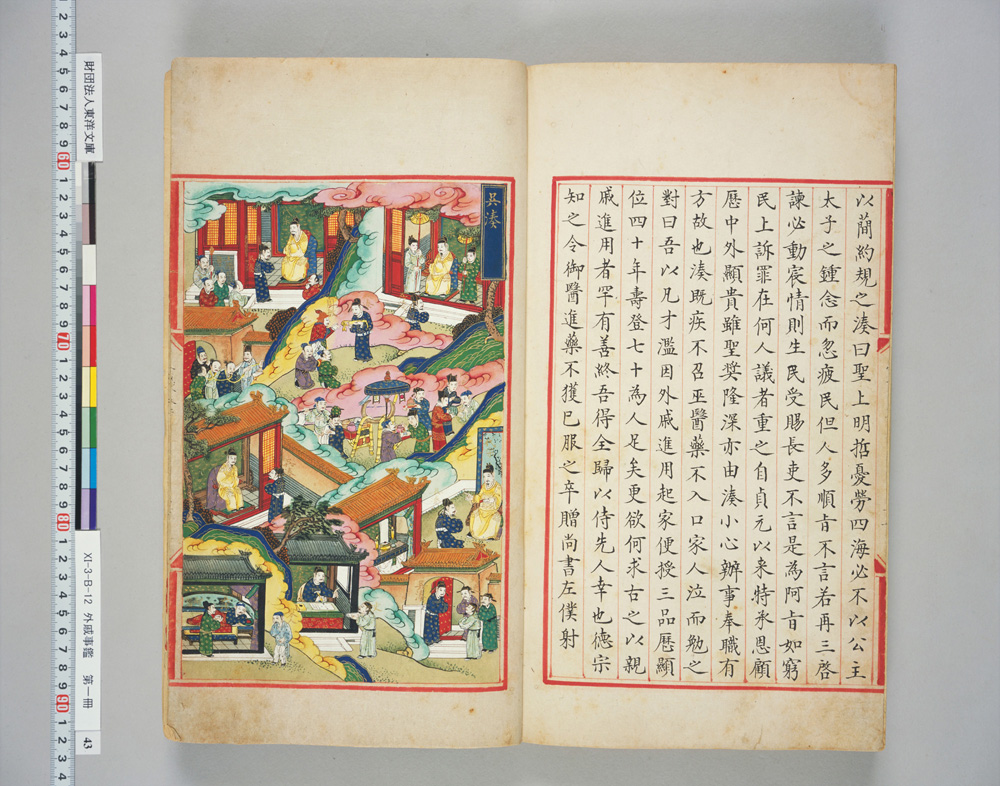 以簡約規之湊曰聖上明哲憂勞四海必不以公主
太子之鍾念而忽疲民但人多順㫖不言若再三啓
諫必動宸情則生民受賜長吏不言是為阿㫖如窮
民上訴罪在何人議者重之自貞元以来特承恩顧
歷中外顯貴雖聖奬隆深亦由湊小心辦事奉職有
方故也湊既疾不召巫醫藥不入口家人泣而勉之
對曰吾以凡才濫因外戚進用起家便授三品歷顯
位四十年壽登七十為人足矣更欲何求古之以親
戚進用者罕有善終吾得全歸以侍先人幸也德宗
知之令御醫進藥不獲已服之卒贈尚書左僕射
吳湊
財団法人東洋文庫
XI-3-B-12 外戚事鑑 第一冊
43
2 3 4 5 6 7 8 9 60 1 2 3 4 5 6 7 8 9 70 1 2 3 4 5 6 7 8 9 80 1 2 3 4 5 6 7 8 9 90 1 2 3 4